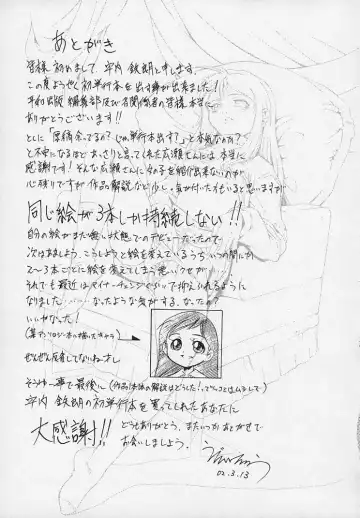 あとがき
皆様初めまして、宇内 鉄朗と申します。
この度ようやく初単行本を出す事が出来ました!
平和出版 編集部及び各関係者の皆様本当に
ありがとうございます!!
とくに「原稿余ってるの?じゃ単行本出す?」と本気なのか?
と不安になるほどあっさりと言ってくれた広瀬さんには本当に
感謝です!
心残りですが作品解説など少し。気が付いた方もいると思いますが
同じ絵が3本しか持続しない!!
自分の絵がまだ無い状態でのデビューだったので
次はあしよう、こうしようと絵を変えているうちいつの間にか
2〜3本ごとに絵を変えてしまう悪いクセが……
それでも最近はマイナーチェンジぐらいで抑えられるように
なりました……なったような気がする。なったの?
いいやなった!
ぜんぜん反省してないねーさん
そうゆー事で最後に(作品自体の解説はどうした!ってツッコミはムシして)
宇内 鉄朗の初単行本を買ってくれたあなたに
大感謝!!
どうもありがとう、またいつかあとがきで
お会いしましょう。
02.3.13